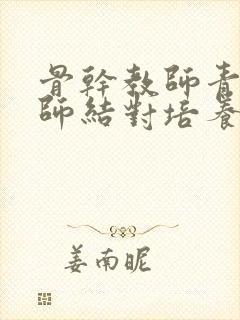 骨幹教師青
師結對培養
姜南昵